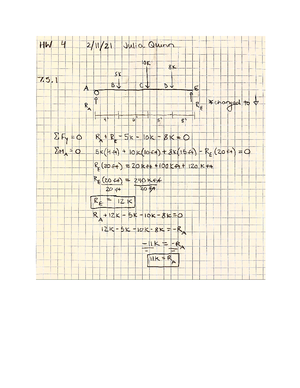 HW 4 2/11/21 Julia Quinn
7.5.1
10K
5K 8K
A B C D E
R_A R_E *changed to ↓
4' 5'
ΣF_y = 0 R_A + R_E - 5K - 10K - 8K = 0
ΣM_A = 0 5K(4ft) + 10K(10ft) + 8K(15ft) - R_E(20ft) = 0
R_E(20ft) = 20Kft + 100Kft + 120Kft
R_E(20ft) = 240Kft
20ft 20ft
R_E = 12K
R_A + 12K - 5K - 10K - 8K = 0
12K - 5K - 10K - 8K = -R_A
-11K = -R_A
11K = R_A